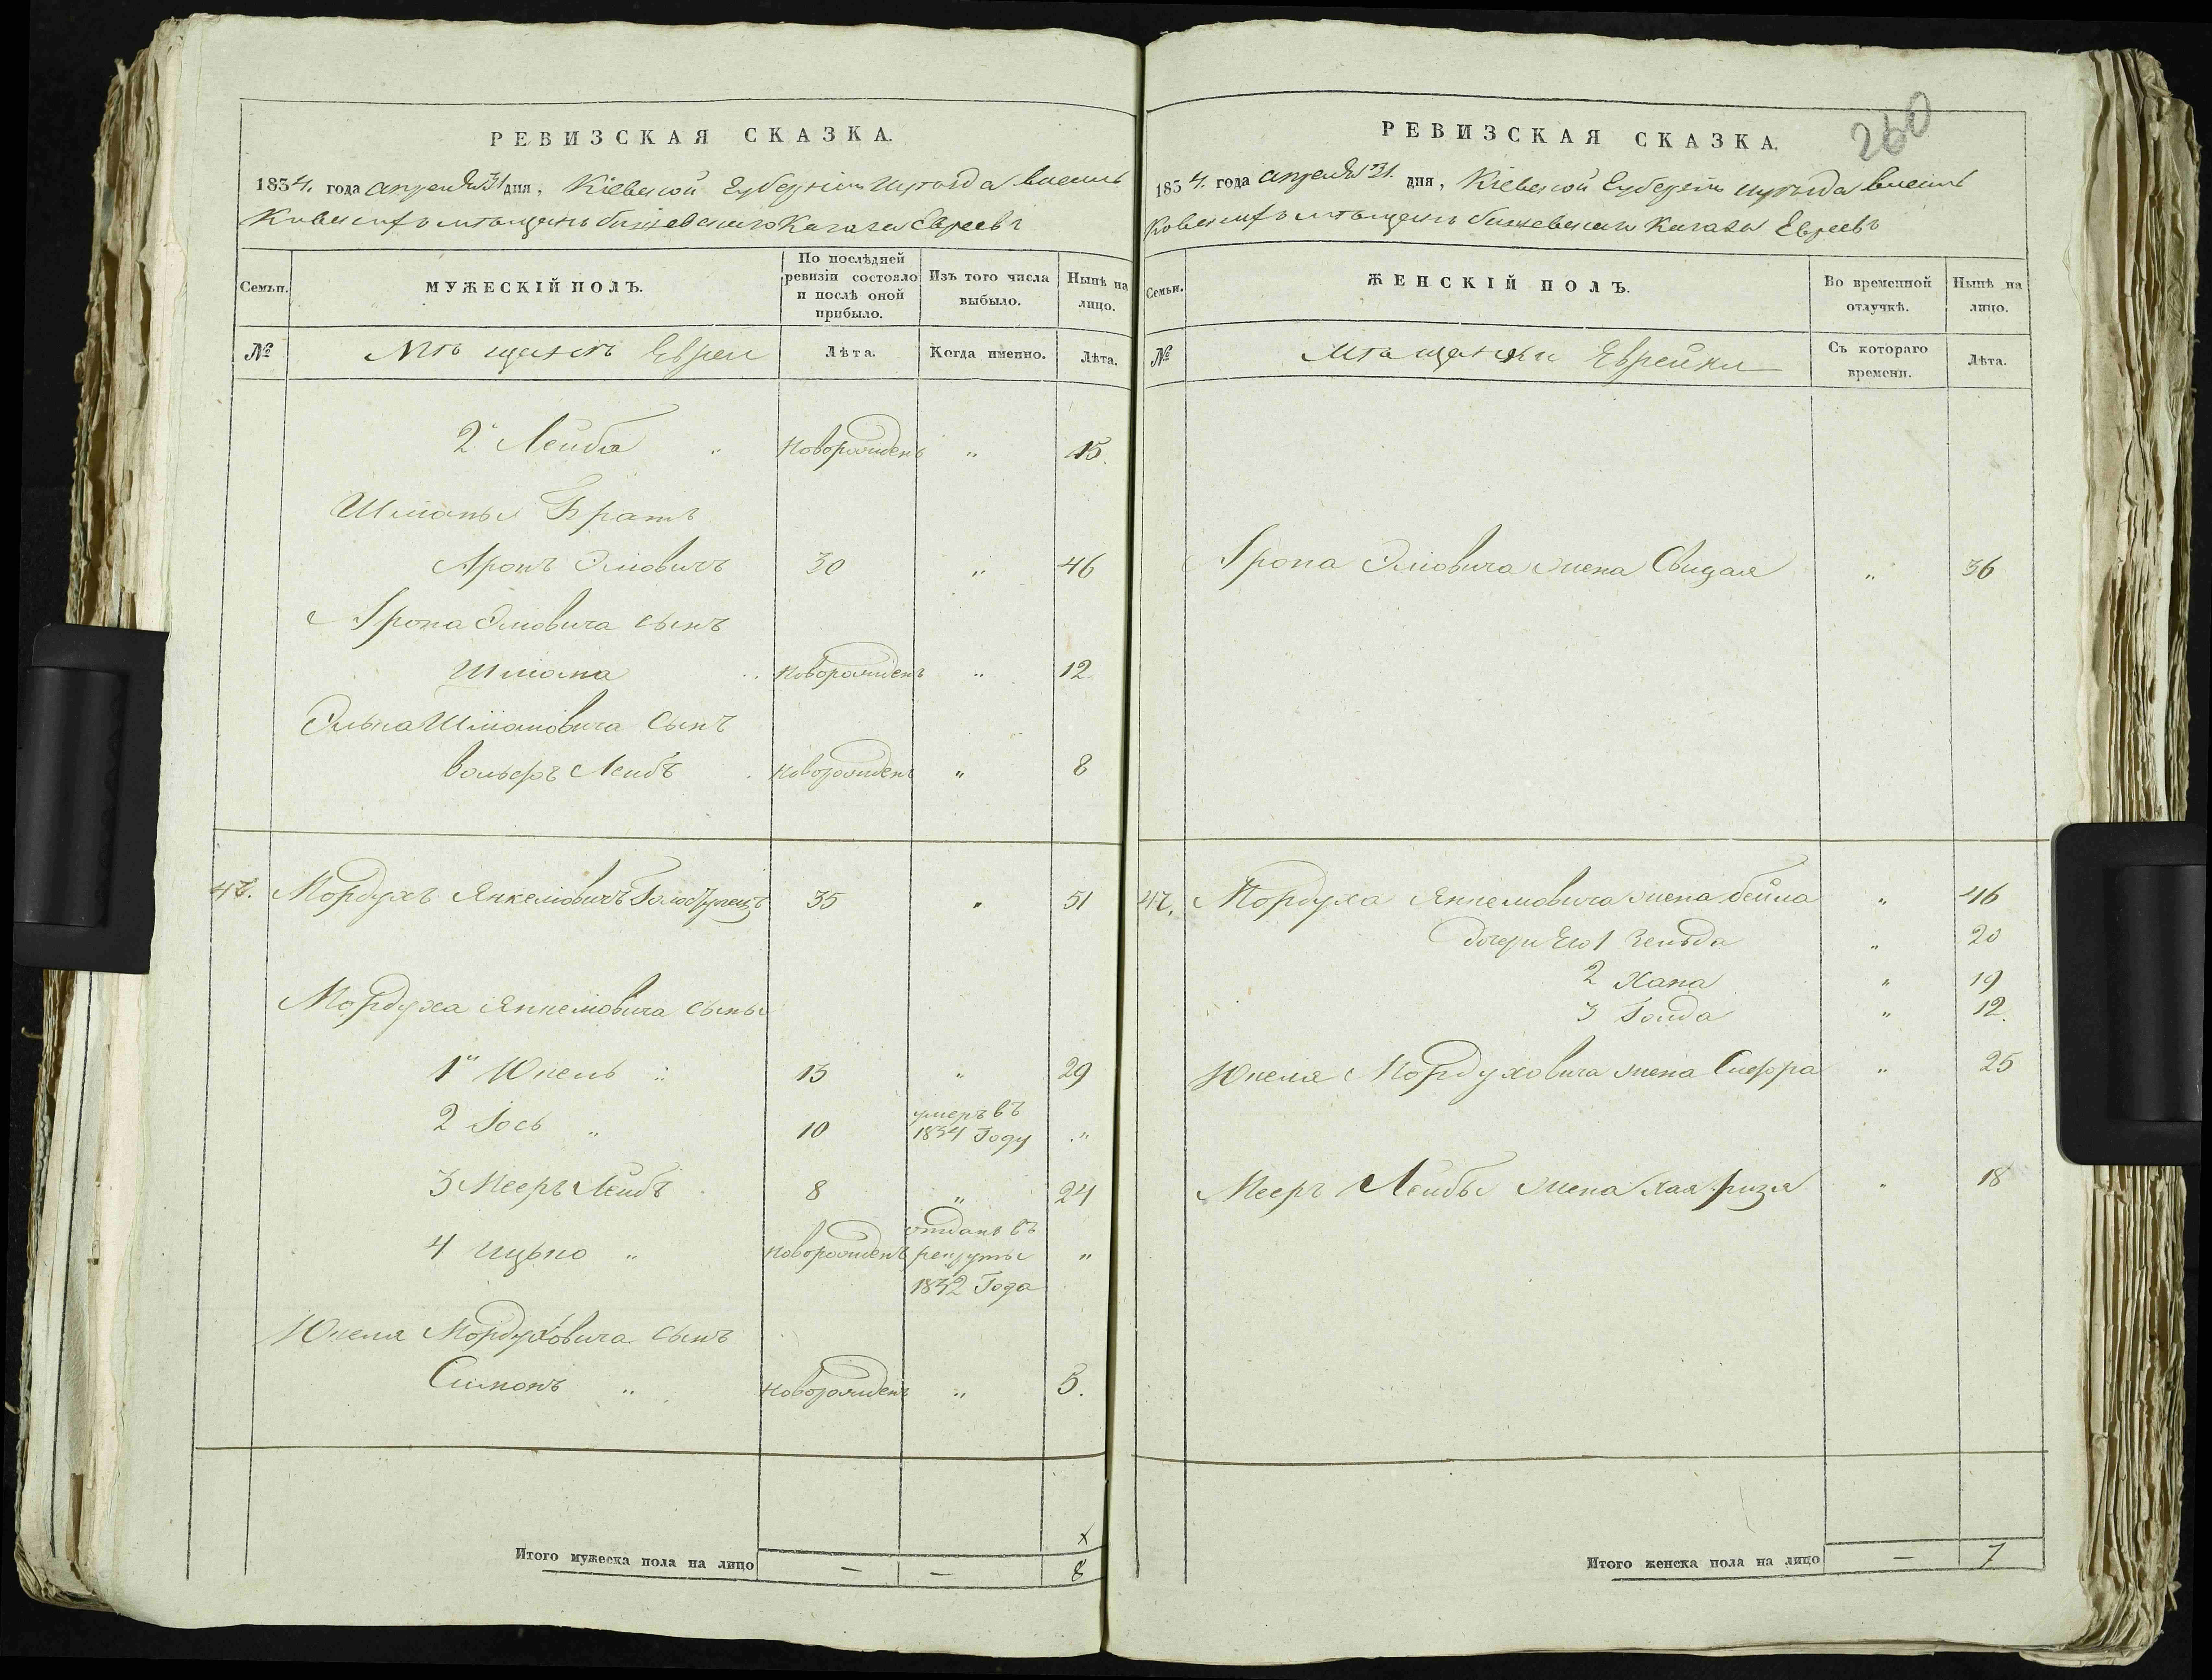 РЕВИЗСКАЯ СКАЗКА.
1834. года апреля 31 дня, Кіевской Губерніи уезда
мѣщанъ Кагала Евреевъ
Семьи.
МУЖЕСКІЙ ПОЛЪ.
По послѣдней ревизіи состояло и послѣ оной прибыло.
Изъ того числа выбыло.
Нынѣ на лицо.
№
Мѣщане Евреи
Лѣта.
Когда именно.
Лѣта.
2й Лейба " новорожденъ " 15.
Братъ
Аронъ 30 " 46
Арона сынъ
новорожденъ " 12
сынъ
Лейбъ новорожденъ " 8
47. Мордухъ Янкелiовичъ 35 " 51
Мордуха Янкелiовича сыны
1й Юкель " 13 " 29
2 Іось " 10 умеръ въ 1834 Году "
3 Мееръ Лейбъ 8 " 24
4 Ицько " новорожденъ отданъ въ рекруты 1832 Года "
Юкеля Мордуховича сынъ
Симонъ " новорожденъ " 5.
х
Итого мужеска пола на лицо — — 8
260
РЕВИЗСКАЯ СКАЗКА.
1834. года апреля 31. дня, Кіевской Губерніи уезда
мѣщанъ Кагала Евреевъ
Семьи.
ЖЕНСКІЙ ПОЛЪ.
Во временной отлучкѣ.
Нынѣ на лицо.
№
Мѣщанки Еврейки
Съ котораго времени.
Лѣта.
Арона жена " 36
47. Мордуха Янкелiовича жена Бейла " 46
дочери Его 1 Зельда " 20
2 Хана " 19
3 Голда " 12.
Юкеля Мордуховича жена Сифра " 25
Мееръ Лейбы жена Хая " 18
Итого женска пола на лицо — 7